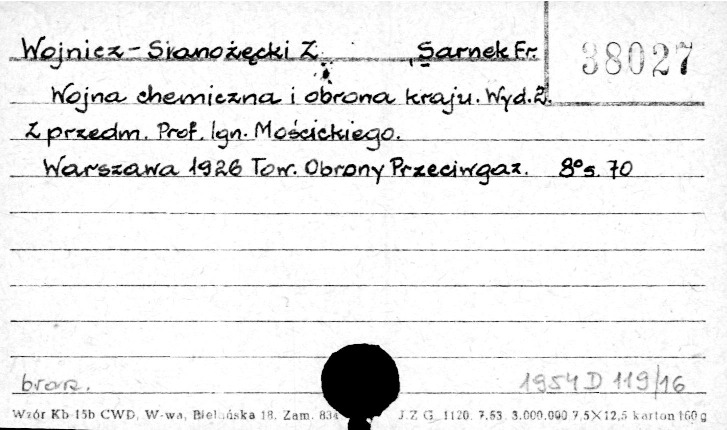 Wojnicz-Sianożęcki Z , Sarnek Fr.
38027
Wojna chemiczna i obrona kraju. Wyd. 2.
Z przedm. Prof. Ign. Mościckiego.
Warszawa 1926 Tow. Obrony Przeciwgaz. 8° s. 70
brosz.
1954 D 119/16
Wzór Kb 15b CWD, W-wa, Bielańska 18. Zam. 834 J.Z G. 1120. 7.53. 3.000.000 7,5×12,5 karton 160 g